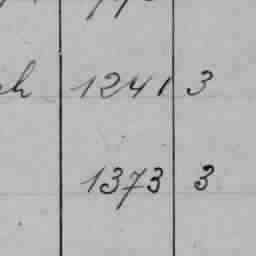 ch 1241 3
1373 3